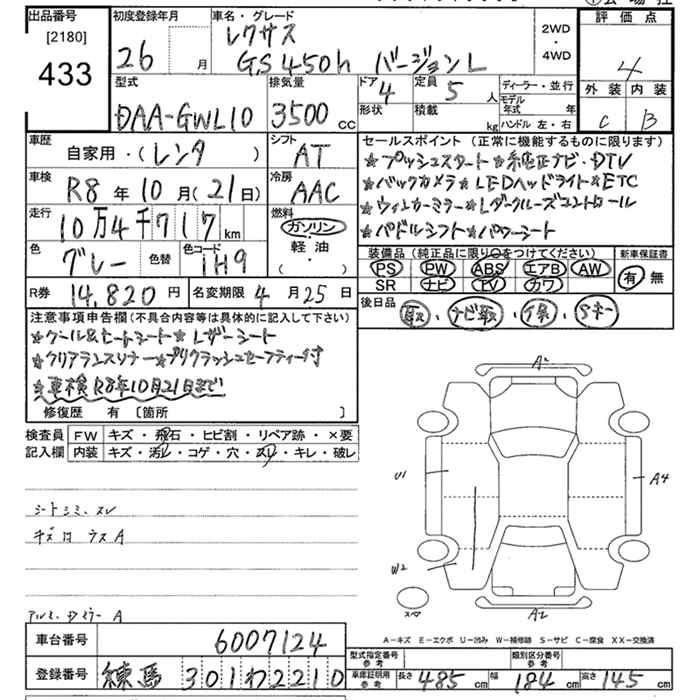 出品番号 初度登録年月 車名・グレード 評価点
[2180] 433 26 月 レクサス GS450h バージョンL 2WD・4WD 4
外装 内装
C B
型式 排気量 ドア 定員 ディーラー・並行
DAA-GWL10 3500 cc 4 5 人 モデル年式 年
形状 積載 kg ハンドル 左・右
車歴 シフト セールスポイント (正常に機能するものに限ります)
自家用・(レンタ) AT ★プッシュスタート★純正ナビ・DTV
車検 冷房 ★バックカメラ★LEDヘッドライト★ETC
R8年10月(21日) AAC ★ウィンカーミラー★レダークルーズコントロール
走行 燃料 ★パドルシフト★パワーシート
10万4千717km ガソリン・軽油・( )
色 色替 色コード 装備品 (純正品に限り○をつけてください) 新車保証書
グレー 1H9 PS PW ABS エアB AW 有 無
SR ナビ TV カワ
R券 14,820円 名変期限 4月25日 後日品
取、ナビ取、保、Sキー
注意事項申告欄(不具合内容等は具体的に記入して下さい)
★クール&ヒートシート★レザーシート
★クリアランスソナー★プリクラッシュセーフティー付
★車検R8年10月21日まで
修復歴 有 [箇所 ]
検査員 FW キズ・飛石・ヒビ割・リペア跡・×要
記入欄 内装 キズ・汚レ・コゲ・穴・スレ・キレ・破レ
シートシミ、スレ
A2
U1
A4
W2
スペア
A2
A-キズ E-エクボ U-凹み W-補修跡 S-サビ C-腐食 XX-交換済
車台番号 6007124
登録番号 練馬 301わ2210
型式指定番号 参考 類別区分番号 参考
車庫証明用 参考 長さ 485cm 幅 184cm 高さ 145cm